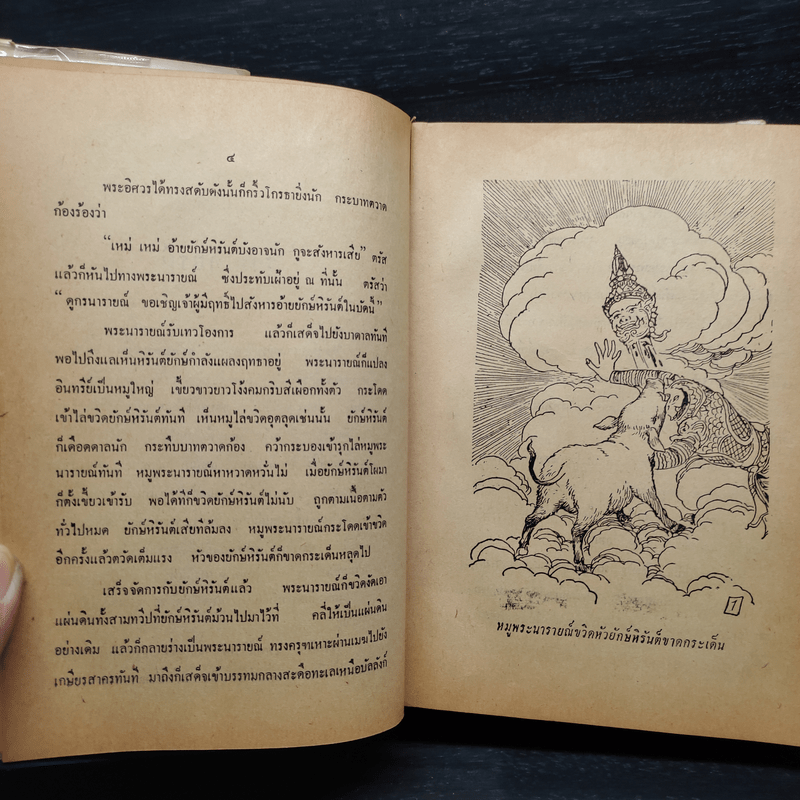 ๔
พระอิศวรได้ทรงสดับดังนั้นก็กริ้วโกรธายิ่งนัก กระบาทตวาด
ก้องร้องว่า
“เหม่ เหม่ อ้ายยักษ์หิรันต์บังอาจนัก กูจะสังหารเสีย” ตรัส
แล้วก็หันไปทางพระนารายณ์ ซึ่งประทับเฝ้าอยู่ ณ ที่นั้น ตรัสว่า
“ดูกรนารายณ์ ขอเชิญเจ้าผู้มีฤทธิ์ไปสังหารอ้ายยักษ์หิรันต์ในบัดนี้”
พระนารายณ์รับเทวโองการ แล้วก็เสด็จไปยังบาดาลทันที
พอไปถึงแลเห็นหิรันต์ยักษ์กำลังแผลงฤทธาอยู่ พระนารายณ์ก็แปลง
อินทรีย์เป็นหมูใหญ่ เขี้ยวขาวยาวโง้งคมกริบสีเผือกทั้งตัว กระโดด
เข้าไล่ขวิดยักษ์หิรันต์ทันที เห็นหมูไล่ขวิดอุตลุดเช่นนั้น ยักษ์หิรันต์
ก็เดือดดาลนัก กระทืบบาทตวาดก้อง คว้ากระบองเข้ารุกไล่หมูพระ
นารายณ์ทันที หมูพระนารายณ์หาหวาดหวั่นไม่ เมื่อยักษ์หิรันต์โผมา
ก็ตั้งเขี้ยวเข้ารับ พอได้ทีก็ขวิดยักษ์หิรันต์ไม่นับ ถูกตามเนื้อตามตัว
ทั่วไปหมด ยักษ์หิรันต์เสียทีล้มลง หมูพระนารายณ์กระโดดเข้าขวิด
อีกครั้งแล้วตวัดเต็มแรง หัวของยักษ์หิรันต์ก็ขาดกระเด็นหลุดไป
เสร็จจัดการกับยักษ์หิรันต์แล้ว พระนารายณ์ก็ขวิดงัดเอา
แผ่นดินทั้งสามทวีปที่ยักษ์หิรันต์ม้วนไปมาไว้ที่ คลี่ให้เป็นแผ่นดิน
อย่างเดิม แล้วก็กลายร่างเป็นพระนารายณ์ ทรงครุฑเหาะผ่านเมฆไปยัง
เกษียรสาครทันที มาถึงก็เสด็จเข้าบรรทมกลางสะดือทะเลเหนือบัลลังก์
1
หมูพระนารายณ์ขวิดหัวยักษ์หิรันต์ขาดกระเด็น